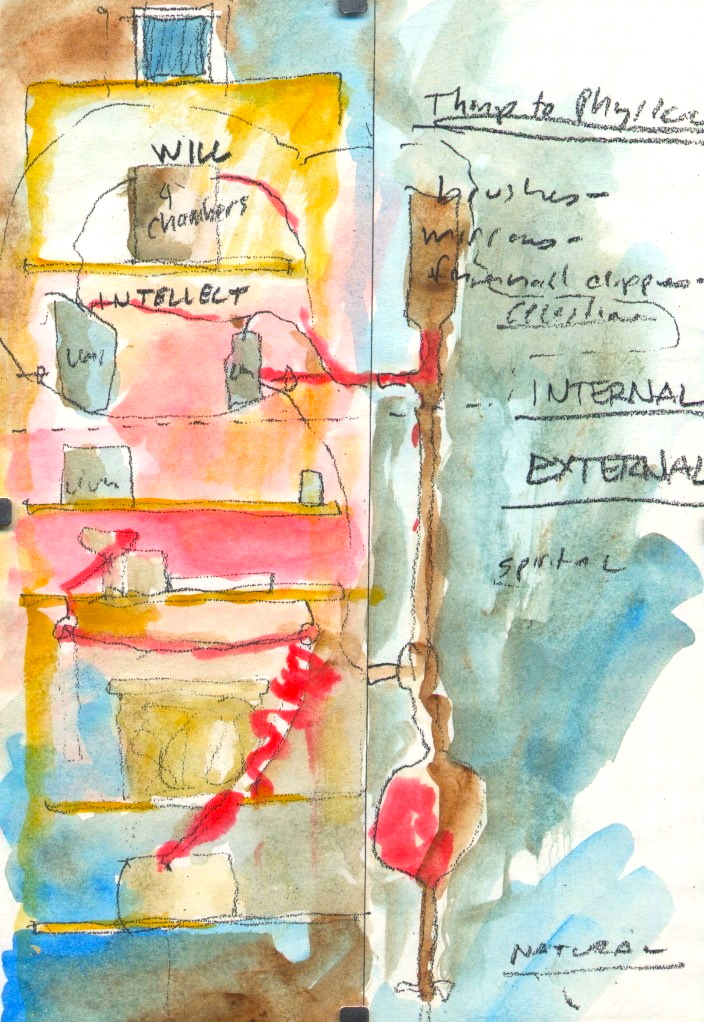 WILL
4
Chambers
INTELLECT
to Physical
brushes-
mirrors-
clippers-
Celestial
INTERNAL
EXTERNAL
spiritual
NATURAL